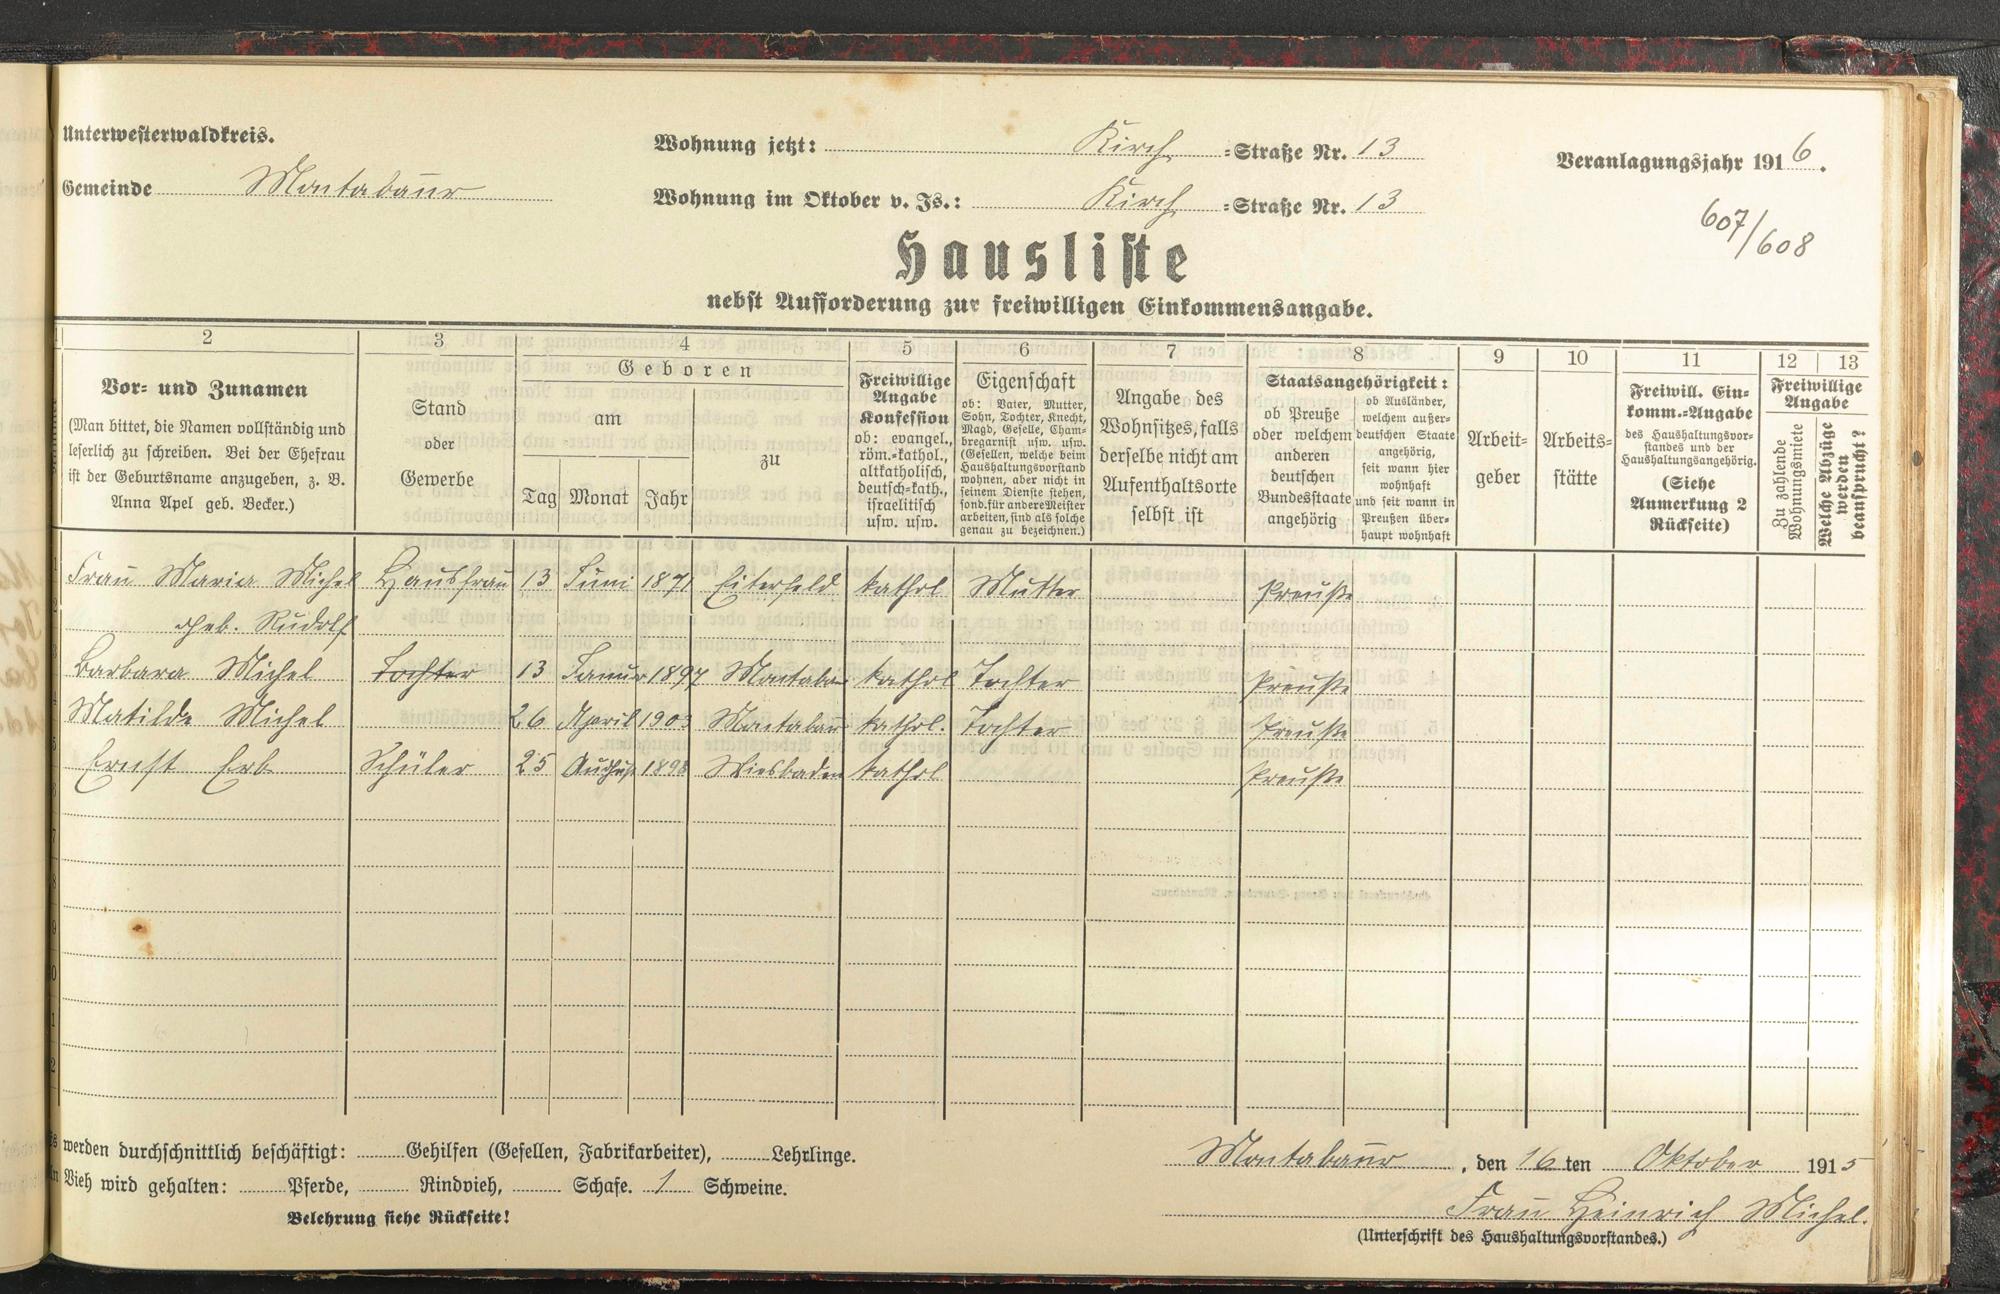 Unterwesterwaldkreis.
Gemeinde Montabaur
Wohnung jetzt: Kirch =Straße Nr. 13
Wohnung im Oktober v. Js.: Kirch =Straße Nr. 13
Veranlagungsjahr 1916.
607/608
Hausliste
nebst Aufforderung zur freiwilligen Einkommensangabe.
2 3 4 5 6 7 8 9 10 11 12 13
Vor- und Zunamen
(Man bittet, die Namen vollständig und
leserlich zu schreiben. Bei der Ehefrau
ist der Geburtsname anzugeben, z. B.
Anna Apel geb. Becker.)
Stand
oder
Gewerbe
Geboren
am
Tag Monat Jahr
zu
Freiwillige
Angabe
Konfession
ob: evangel.,
röm.=kathol.,
altkatholisch,
deutsch=kath.,
israelitisch
usw. usw.
Eigenschaft
ob: Vater, Mutter,
Sohn, Tochter, Knecht,
Magd, Geselle, Cham-
bregarnist usw. usw.
(Gesellen, welche beim
Haushaltungsvorstand
wohnen, aber nicht in
seinem Dienste stehen,
sond. für andere Meister
arbeiten, sind als solche
genau zu bezeichnen.)
Angabe des
Wohnsitzes, falls
derselbe nicht am
Aufenthaltsorte
selbst ist
Staatsangehörigkeit:
ob Preuße
oder welchem
anderen
deutschen
Bundesstaate
angehörig
ob Ausländer,
welchem außer-
deutschen Staate
angehörig,
seit wann hier
wohnhaft
und seit wann in
Preußen über-
haupt wohnhaft
Arbeit-
geber
Arbeits-
stätte
Freiwill. Ein-
komm.=Angabe
des Haushaltungsvor-
standes und der
Haushaltungsangehörig.
(Siehe
Anmerkung 2
Rückseite)
Freiwillige
Angabe
Zu zahlende
Wohnungsmiete
Welche Abzüge
werden
beansprucht?
Frau Maria Michel Hausfrau 13 Juni 1871 Eiterfeld kathol Mutter Preuße
geb. Rudolf
Barbara Michel Tochter 13 Januar 1897 Montabaur kathol Tochter Preuße
Matilde Michel 26 April 1903 Montabaur kathol. Tochter Preuße
Ernst Erb Schüler 25 August 1898 Wiesbaden kathol Preuße
werden durchschnittlich beschäftigt: Gehilfen (Gesellen, Fabrikarbeiter), Lehrlinge.
Vieh wird gehalten: Pferde, Rindvieh, Schafe. 1 Schweine.
Belehrung siehe Rückseite!
Montabaur, den 16 ten Oktober 1915
Frau Heinrich Michel.
(Unterschrift des Haushaltungsvorstandes.)